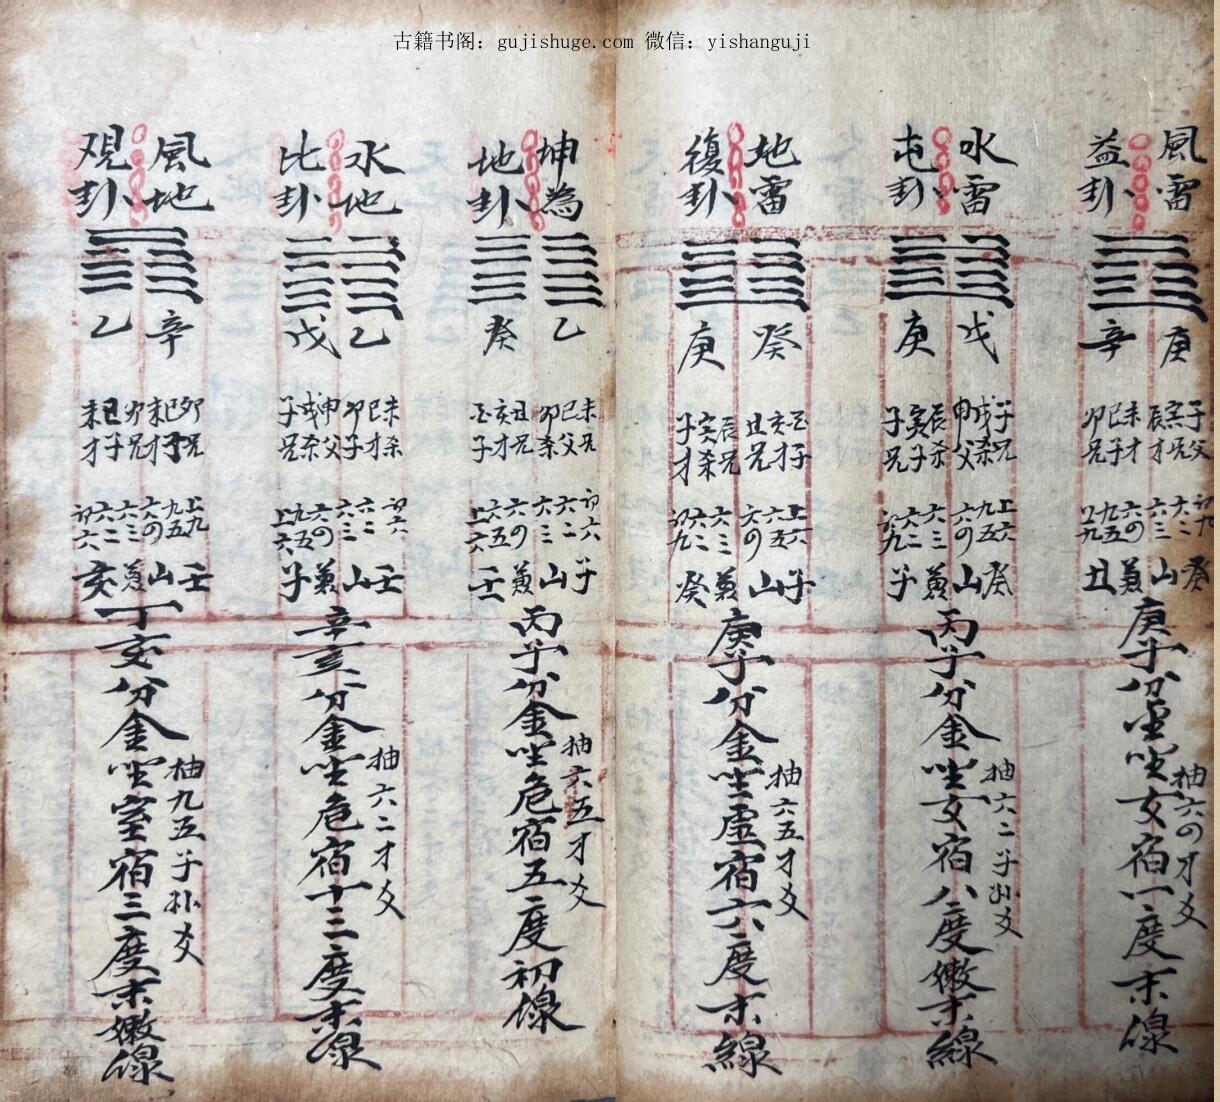 古籍书阁：gujishuge.com 微信：yishanguji
風雷
益卦
庚
辛
子父
寅兄
辰才
未才
巳子
卯兄
初九
六二
六三
六四
九五
上九
癸山兼丑
庚子分金坐女宿一度末線
抽六四才爻
水雷
屯卦
戊
庚
子兄
戌杀
申父
辰杀
寅子
子兄
上六
九五
六四
六三
六二
初九
癸山兼子
丙子分金坐女宿八度嫩末線
抽六二子孙爻
地雷
復卦
癸
庚
亥才
丑兄
辰兄
寅杀
子才
上六
六五
六四
六三
六二
初九
子山兼癸
庚子分金坐虚宿六度末線
抽六五才爻
坤為
地卦
乙
癸
未兄
巳父
卯杀
丑兄
亥才
初六
六二
六三
六四
六五
上六
子山兼壬
丙子分金坐危宿五度初線
抽六五才爻
水地
比卦
乙
戊
未杀
巳才
卯子
申父
戌杀
子兄
初六
六二
六三
六四
九五
上六
壬山兼子
辛亥分金坐危宿十三度末線
抽六二才爻
風地
观卦
辛
乙
卯兄
巳子
未才
卯兄
巳子
未才
上九
九五
六四
六三
六二
初六
壬山兼亥
丁亥分金坐室宿三度末嫩線
抽九五子孙爻